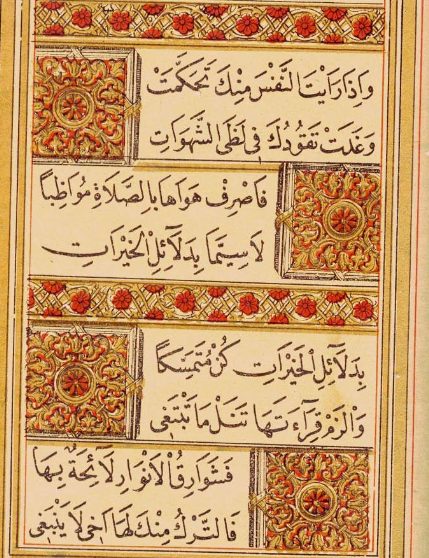 وَاِذَا رَاَيْتَ النَّفْسَ مِنْكَ تَحَكَّمَتْ
وَغَدَتْ تَقُودُكَ فِى لَظَى الشَّهَوَاتِ
فَاصْرِفْ هَوَاهَا بِالصَّلَاةِ مُوَاظِبًا
لَاسِيَّمَا بِدَلَآئِلِ الْخَيْرَاتِ
بِدَلَآئِلِ الْخَيْرَاتِ كُنْ مُتَمَسِّكًا
وَالْزَمْ قِرَآءَتَهَا تَنَلْ مَا تَبْتَغِى
فَشَوَارِقُ الْاَنْوَارِ لَآئِحَةٌ بِهَا
فَالتَّرْكُ مِنْكَ لَهَا اَخِى لَا يَنْبَغِى